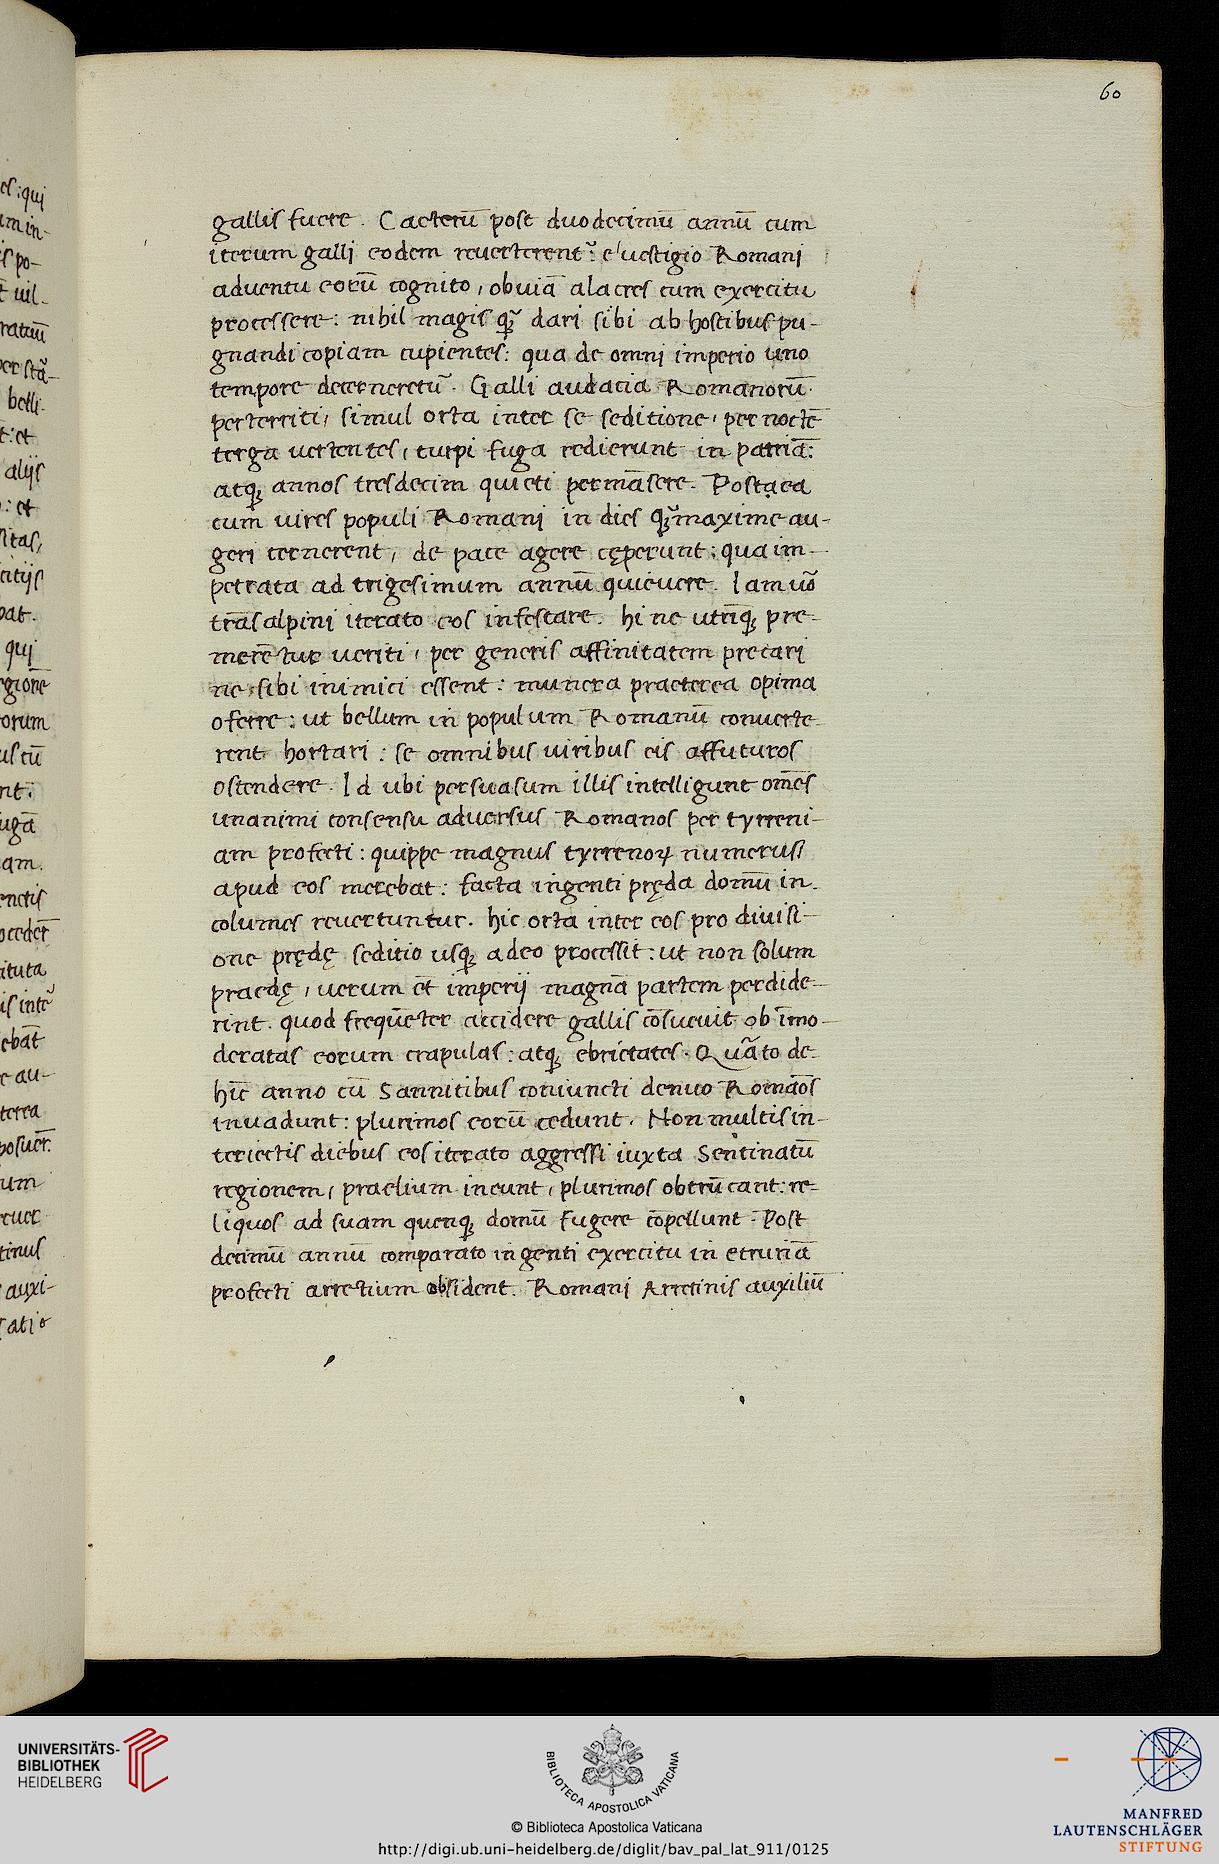 60
gallis fuere. Caeterū post duodecimū annū cum
iterum galli eodem reuerterent᷑: e uestigio Romani
aduentu eorū cognito, obuiā alacres cum exercitu
processere: nihil magis q̃ dari sibi ab hostibus pu-
gnandi copiam cupientes: qua de omni imperio uno
tempore decerneret᷑. Galli audacia Romanorū
perterriti, simul orta inter se seditione, per noctē
terga uertentes, turpi fuga redierunt in patriā:
atq; annos tresdecim quieti permāsere. Postaea
cum uires populi Romani in dies q̃maxime au-
geri cernerent, de pace agere cęperunt: qua im-
petrata ad trigesimum annū quieuere. Iam uo᷑
trāsalpini iterato eos infestare. hi ne utrīq; pre-
merētur ueriti, per generis affinitatem precari
ne sibi inimici essent: munera praeterea opima
oferre: ut bellum in populum Romanū conuerte-
rent hortari: se omnibus uiribus eis affuturos
ostendere. Id ubi persuasum illis intelligunt om̄es
unanimi consensu aduersus Romanos per tyrreni-
am profecti: quippe magnus tyrrenoꝝ numerus
apud eos merebat: facta ingenti pręda domū in-
columes reuertuntur. hic orta inter eos pro diuisi-
one prędę seditio usq; adeo processit: ut non solum
praedę, uerum et imperij magnā partem perdide-
rint. quod frequēter accidere gallis cōsueuit ob īmo-
deratas eorum crapulas: atq; ebrietates. Quāto de-
hīc anno cū Sannitibus coniuncti denuo Romāos
inuadunt: plurimos eorū cedunt. Non multis in-
teriectis diebus eos iterato aggressi iuxta Sentinatū
regionem, praelium ineunt, plurimos obtrūcant: re-
liquos ad suam quenq; domū fugere cōpellunt. Post
decimū annū comparato ingenti exercitu in etruriā
profecti arretium obsident. Romani Arretinis auxiliū
UNIVERSITÄTS-
BIBLIOTHEK
HEIDELBERG
BIBLIOTECA APOSTOLICA VATICANA
© Biblioteca Apostolica Vaticana
http://digi.ub.uni-heidelberg.de/diglit/bav_pal_lat_911/0125
MANFRED
LAUTENSCHLÄGER
STIFTUNG